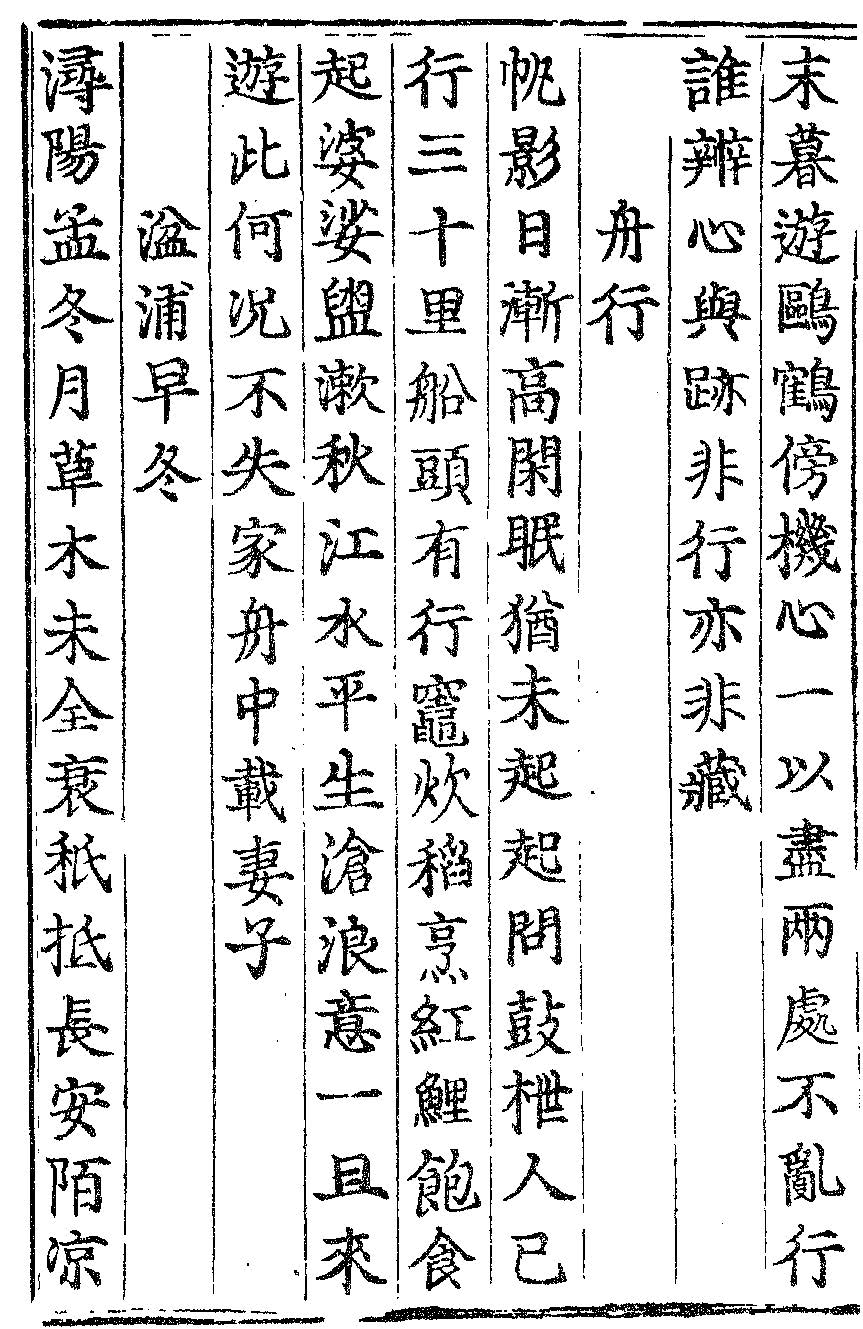 末暮遊鷗鶴傍機心一以盡兩處不亂行
誰辨心與跡非行亦非藏
舟行
帆影日漸高閑眠猶未起起問鼓枻人已
行三十里船頭有行竈炊稻烹紅鯉飽食
起婆娑盥漱秋江水平生滄浪意一旦來
遊此何況不失家舟中載妻子
湓浦早冬
潯陽孟冬月草木未全衰秖抵長安陌凉